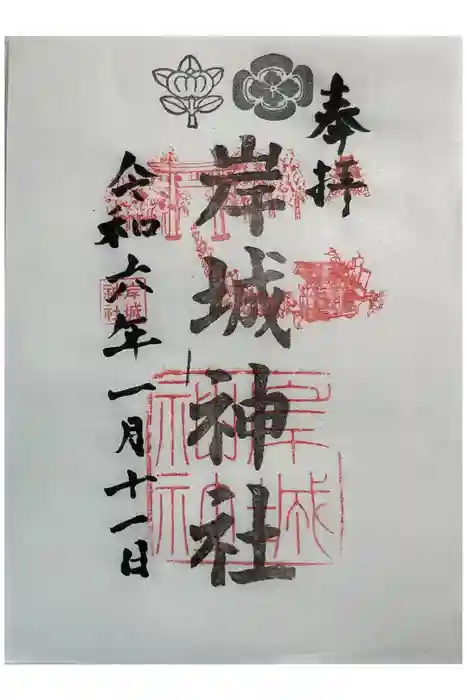 奉拝
岸城神社
令和六年一月十一日
岸城
神社
岸城
神社